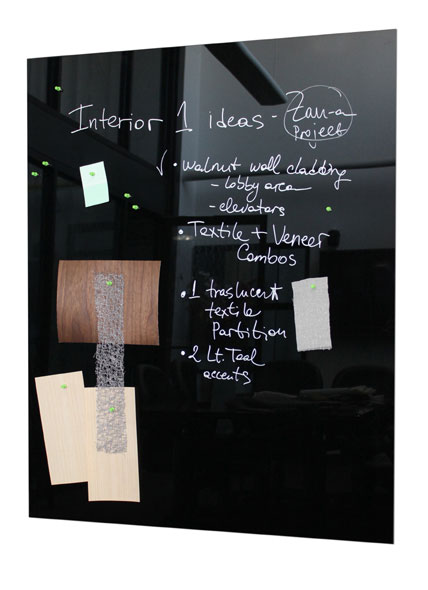 Interior 1 ideas - Zau-a
Project
✓ • walnut wall cladding
- lobby area
- elevators
• Textile + Veneer
Combos
• 1 traslucent
textile
Partition
• 2 Lt. Teal
accents